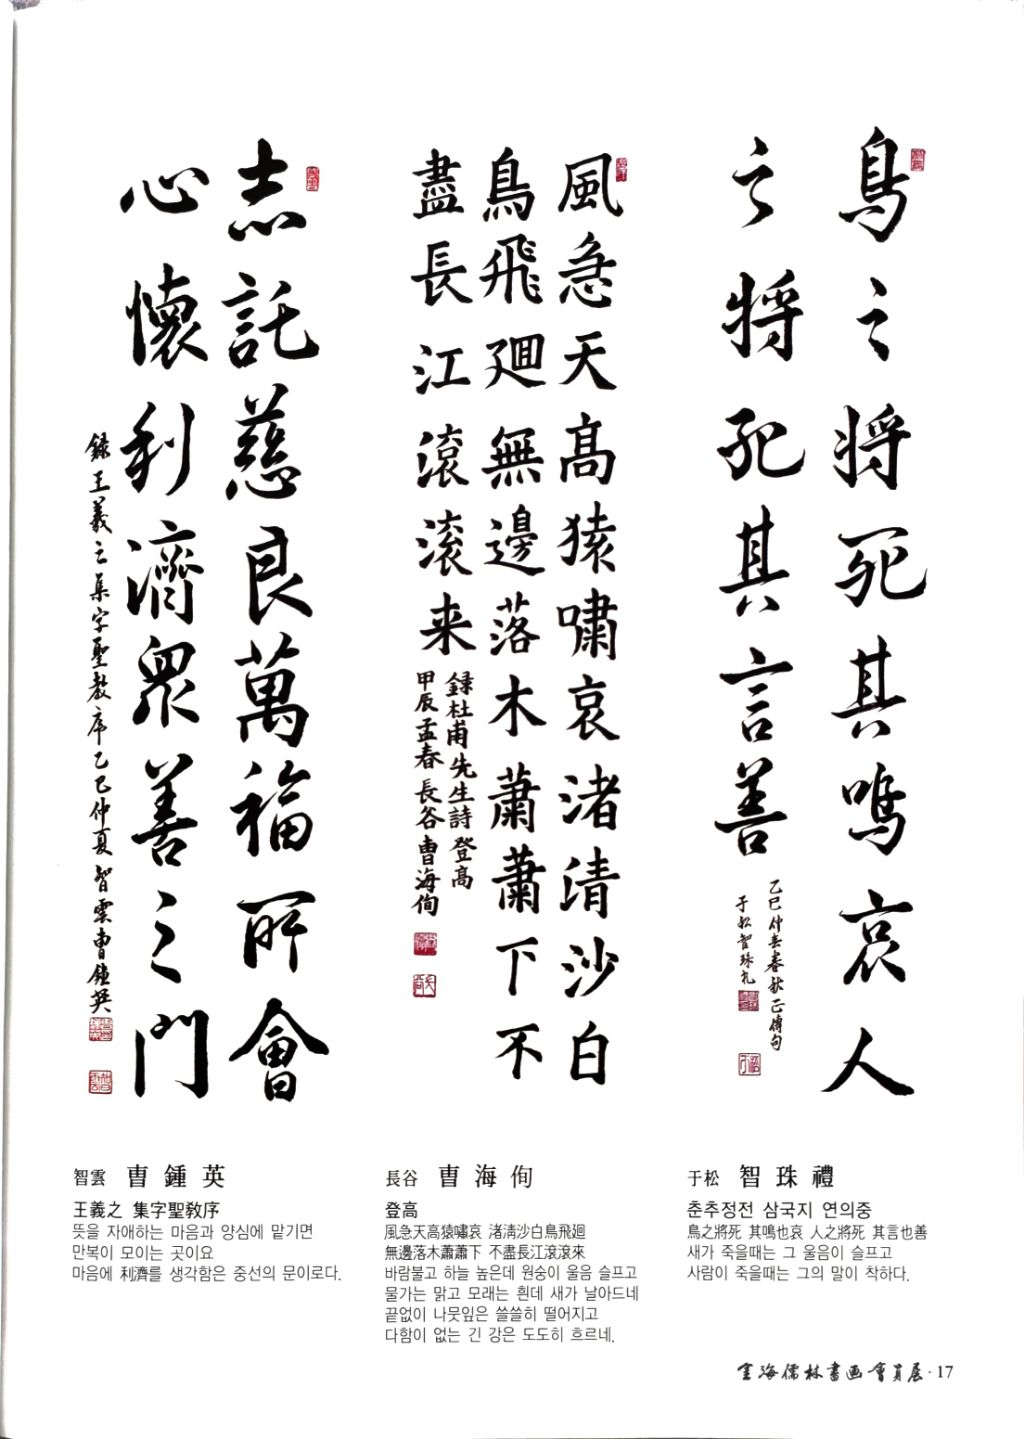 鳥之將死其鳴哀人
之將死其言善
乙巳仲春春秋正傳句
于松智珠礼
風急天高猿嘯哀渚清沙白
鳥飛廻無邊落木蕭蕭下不
盡長江滾滾来
錄杜甫先生詩登高
甲辰孟春長谷曺海侚
志託慈良萬福所會
心懷利濟眾善之門
錄王羲之集字聖教序乙巳仲夏智雲曺鍾英
智雲 曺鍾英
王義之 集字聖敎序
뜻을 자애하는 마음과 양심에 맡기면
만복이 모이는 곳이요
마음에 利濟를 생각함은 중선의 문이로다.
長谷 曺海侚
登高
風急天高猿嘯哀 渚淸沙白鳥飛廻
無邊落木蕭蕭下 不盡長江滾滾來
바람불고 하늘 높은데 원숭이 울음 슬프고
물가는 맑고 모래는 흰데 새가 날아드네
끝없이 나뭇잎은 쓸쓸히 떨어지고
다함이 없는 긴 강은 도도히 흐르네.
于松 智珠禮
춘추정전 삼국지 연의중
鳥之將死 其鳴也哀 人之將死 其言也善
새가 죽을때는 그 울음이 슬프고
사람이 죽을때는 그의 말이 착하다.
海儒林書画會員展 · 17